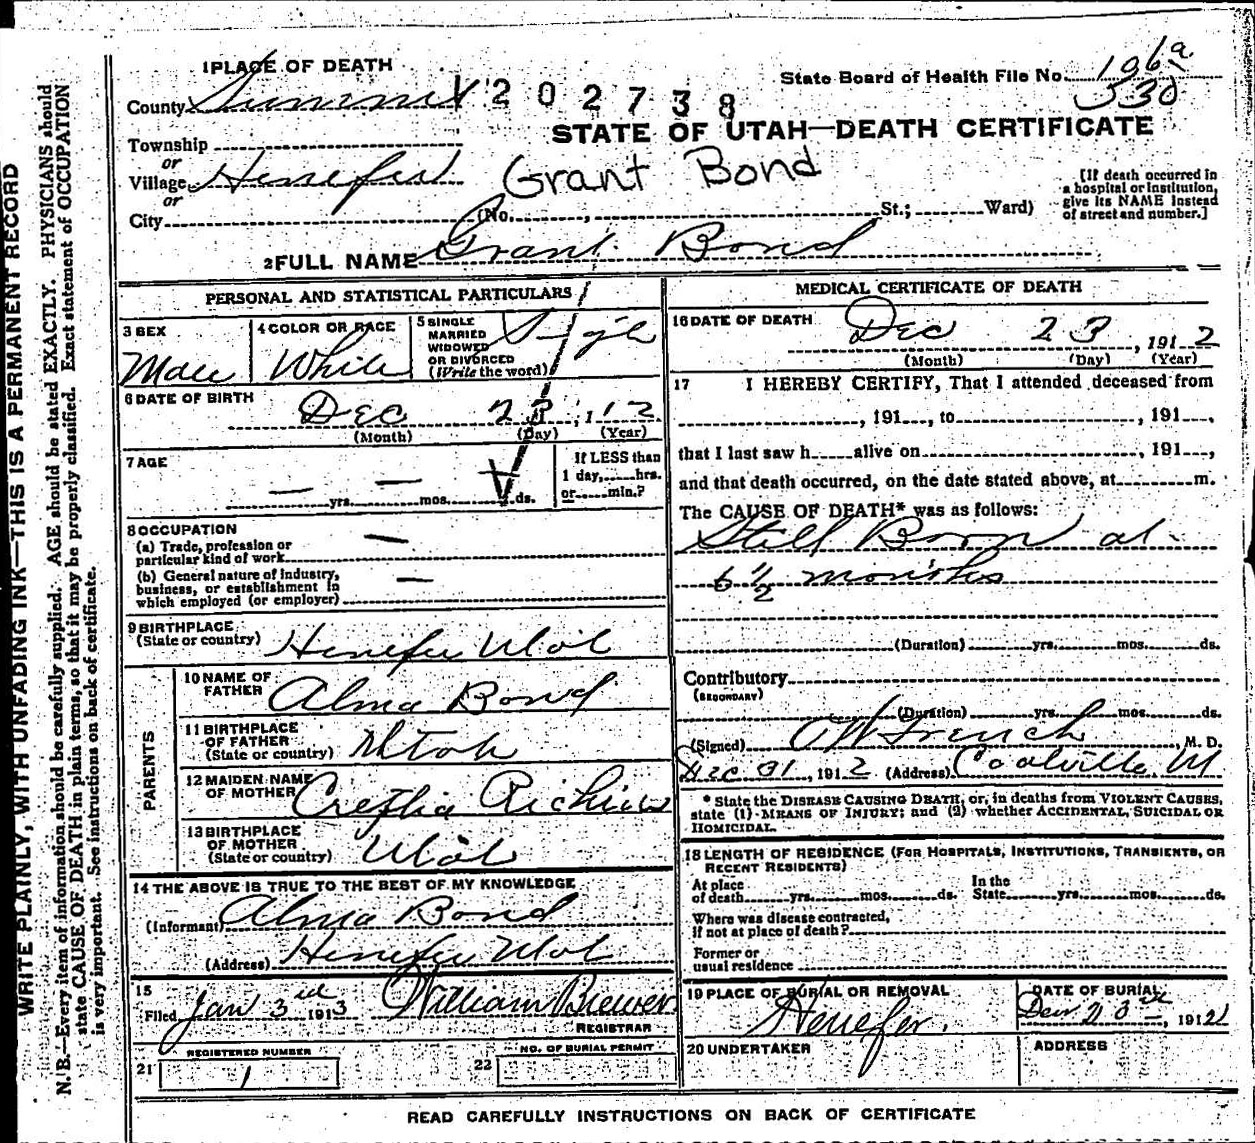 1 PLACE OF DEATH
State Board of Health File No. 196a
530
County Summit V 202738
STATE OF UTAH—DEATH CERTIFICATE
Township
or
Village Henefer
Grant Bond
or
City (No. , St.; Ward)
[If death occurred in
a hospital or institution,
give its NAME instead
of street and number.]
2 FULL NAME Grant Bond
PERSONAL AND STATISTICAL PARTICULARS
3 SEX
Male
4 COLOR OR RACE
White
5 SINGLE
MARRIED
WIDOWED
OR DIVORCED
(Write the word)
Single
6 DATE OF BIRTH
Dec 23, 1912
(Month) (Day) (Year)
7 AGE
— yrs. — mos. ds.
If LESS than
1 day, hrs.
or min.?
8 OCCUPATION
(a) Trade, profession or
particular kind of work —
(b) General nature of industry,
business, or establishment in
which employed (or employer) —
9 BIRTHPLACE
(State or country) Henefer Utah
PARENTS
10 NAME OF
FATHER Alma Bond
11 BIRTHPLACE
OF FATHER
(State or country) Utah
12 MAIDEN NAME
OF MOTHER Richins
13 BIRTHPLACE
OF MOTHER
(State or country) Utah
14 THE ABOVE IS TRUE TO THE BEST OF MY KNOWLEDGE
(Informant) Alma Bond
(Address) Henefer Utah
15
Filed Jan 3rd 1913 William Brewer
REGISTRAR
REGISTERED NUMBER
21 1
NO. OF BURIAL PERMIT
22
MEDICAL CERTIFICATE OF DEATH
16 DATE OF DEATH
Dec 23, 1912
(Month) (Day) (Year)
17 I HEREBY CERTIFY, That I attended deceased from
, 191 , to , 191 ,
that I last saw h alive on , 191 ,
and that death occurred, on the date stated above, at m.
The CAUSE OF DEATH* was as follows:
Still Born at
6 1/2 months
(Duration) yrs. mos. ds.
Contributory
(SECONDARY)
(Duration) yrs. mos. ds.
(Signed) French, M. D.
Dec 31, 1912 (Address) Coalville, U
* State the DISEASE CAUSING DEATH, or, in deaths from VIOLENT CAUSES,
state (1) MEANS OF INJURY; and (2) whether ACCIDENTAL, SUICIDAL OR
HOMICIDAL.
18 LENGTH OF RESIDENCE (FOR HOSPITALS, INSTITUTIONS, TRANSIENTS, OR
RECENT RESIDENTS)
At place
of death yrs. mos. ds.
In the
State yrs. mos. ds.
Where was disease contracted,
if not at place of death?
Former or
usual residence
19 PLACE OF BURIAL OR REMOVAL
Henefer.
DATE OF BURIAL
23rd, 1912
20 UNDERTAKER
ADDRESS
READ CAREFULLY INSTRUCTIONS ON BACK OF CERTIFICATE
WRITE PLAINLY, WITH UNFADING INK—THIS IS A PERMANENT RECORD
N. B.—Every item of information should be carefully supplied. AGE should be stated EXACTLY. PHYSICIANS should
state CAUSE OF DEATH in plain terms, so that it may be properly classified. Exact statement of OCCUPATION
is very important. See instructions on back of certificate.